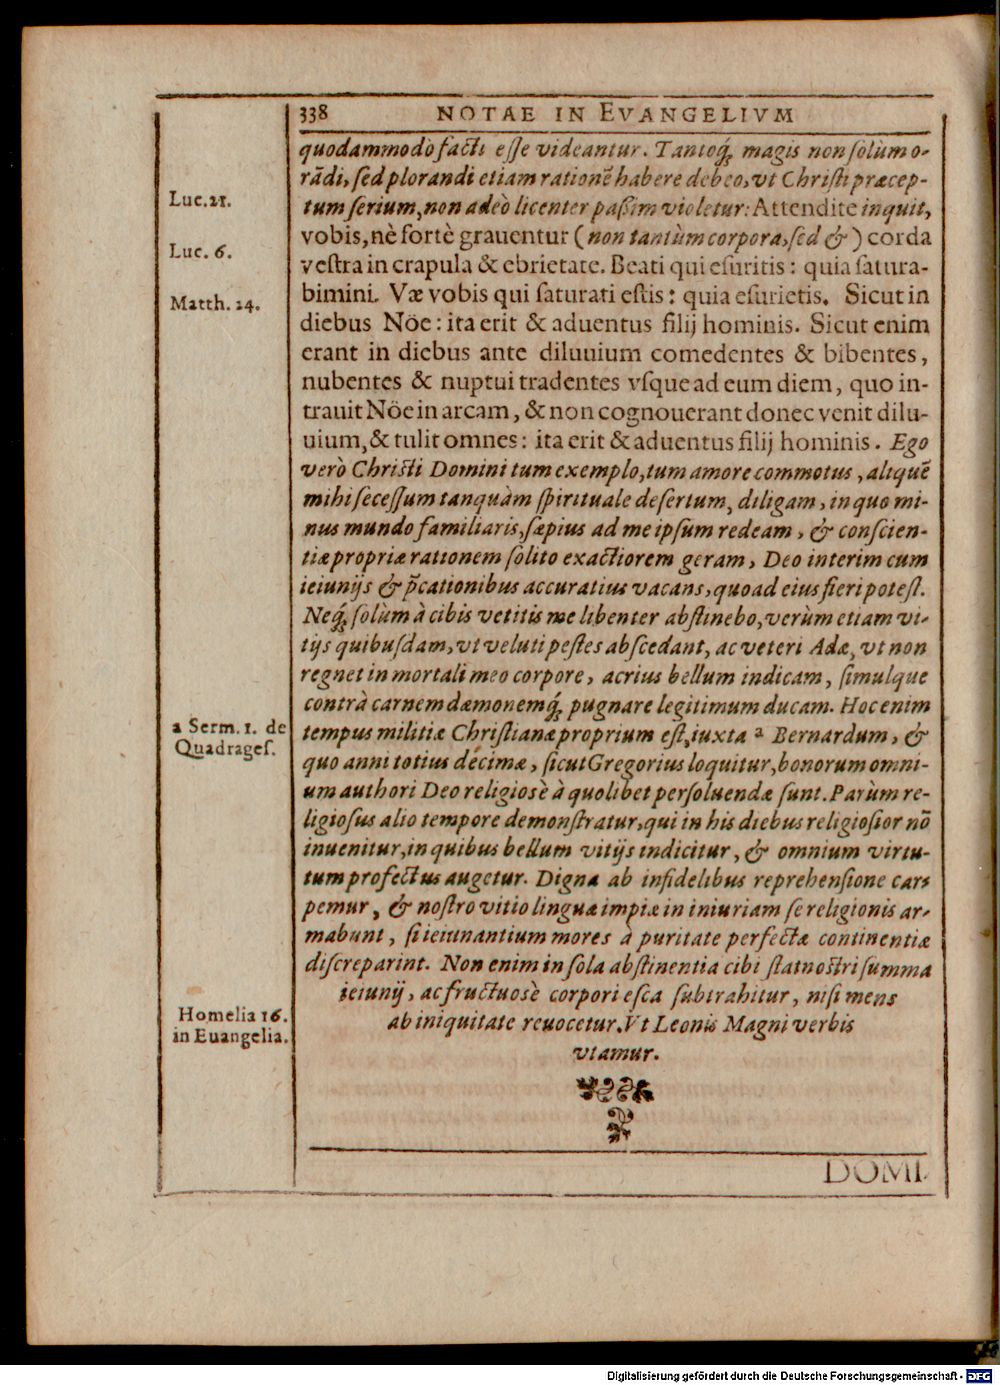 338 NOTAE IN EVANGELIVM
quodammodò facti esse videantur. Tantoq́ꝫ magis non solùm o-
rādi, sed plorandi etiam rationē habere debeo, vt Christi præcep-
Luc. 21.
tum serium, non adeò licenter paßim violetur: Attendite inquit,
vobis, nè fortè grauentur (non tantùm corpora, sed &) corda
Luc. 6.
vestra in crapula & ebrietate. Beati qui esuritis: quia satura-
bimini. Væ vobis qui saturati estis: quia esurietis. Sicut in
Matth. 24.
diebus Nöe: ita erit & aduentus filij hominis. Sicut enim
erant in diebus ante diluuium comedentes & bibentes,
nubentes & nuptui tradentes vsque ad eum diem, quo in-
trauit Nöe in arcam, & non cognouerant donec venit dilu-
uium, & tulit omnes: ita erit & aduentus filij hominis. Ego
verò Christi Domini tum exemplo, tum amore commotus, aliquē
mihi secessum tanquàm spirituale desertum, diligam, in quo mi-
nus mundo familiaris, sæpius ad me ipsum redeam, & conscien-
tiæ propriæ rationem solito exactiorem geram, Deo interim cum
ieiunijs & p̄cationibus accuratius vacans, quoad eius fieri potest.
Neq́ꝫ solùm à cibis vetitis me libenter abstinebo, verùm etiam vi-
tijs quibusdam, vt veluti pestes abscedant, ac veteri Adæ, vt non
regnet in mortali meo corpore, acrius bellum indicam, simulque
contrà carnem dæmonemq́ꝫ pugnare legitimum ducam. Hoc enim
a Serm. 1. de
Quadrages.
tempus militiæ Christianæ proprium est, iuxta ª Bernardum, &
quo anni totius décimæ, sicut Gregorius loquitur, bonorum omni-
um authori Deo religiosè à quolibet persoluendæ sunt. Parùm re-
ligiosus alio tempore demonstratur, qui in his diebus religiosior nō
inuenitur, in quibus bellum vitijs indicitur, & omnium virtu-
tum profectus augetur. Digna ab infidelibus reprehensione car-
pemur, & nostro vitio linguæ impiæ in iniuriam se religionis ar-
mabunt, si ieiunantium mores à puritate perfectæ continentiæ
discreparint. Non enim in sola abstinentia cibi stat nostri summa
ieiunij, ac fructuosè corpori esca subtrahitur, nisi mens
Homelia 16.
in Euangelia.
ab iniquitate reuocetur. Vt Leonis Magni verbis
vtamur.
DOMI-
Digitalisierung gefördert durch die Deutsche Forschungsgemeinschaft - DFG